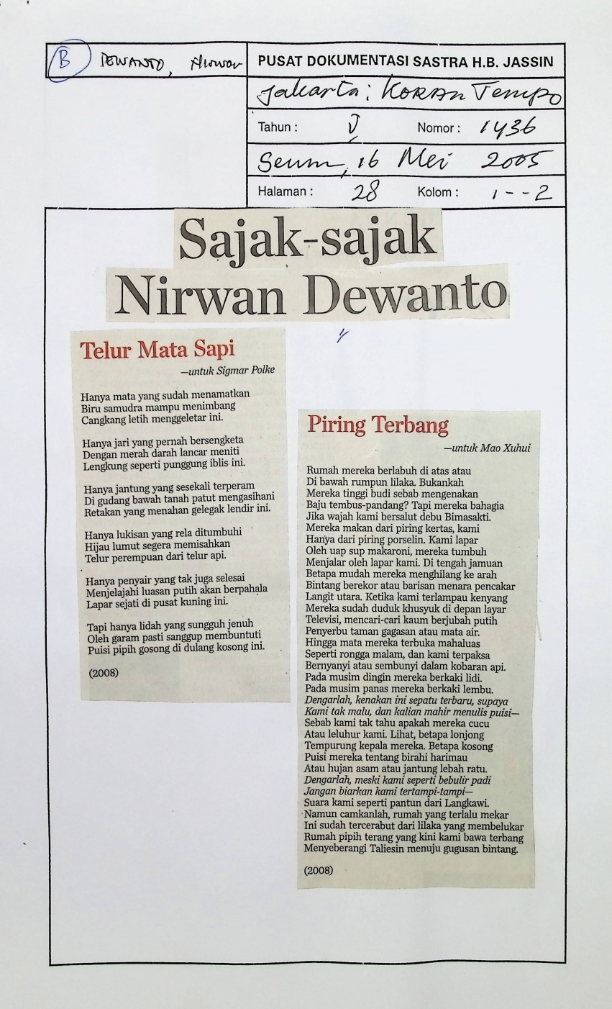 B DEWANTO, Nirwan
PUSAT DOKUMENTASI SASTRA H.B. JASSIN
Jakarta: KORAN Tempo
Tahun : V Nomor : 1436
Senin, 16 Mei 2005
Halaman : 28 Kolom : 1--2
Sajak-sajak
Nirwan Dewanto
Telur Mata Sapi
—untuk Sigmar Polke
Hanya mata yang sudah menamatkan
Biru samudra mampu menimbang
Cangkang letih menggeletar ini.
Hanya jari yang pernah bersengketa
Dengan merah darah lancar meniti
Lengkung seperti punggung iblis ini.
Hanya jantung yang sesekali terperam
Di gudang bawah tanah patut mengasihani
Retakan yang menahan gelegak lendir ini.
Hanya lukisan yang rela ditumbuhi
Hijau lumut segera memisahkan
Telur perempuan dari telur api.
Hanya penyair yang tak juga selesai
Menjelajahi luasan putih akan berpahala
Lapar sejati di pusat kuning ini.
Tapi hanya lidah yang sungguh jenuh
Oleh garam pasti sanggup membuntuti
Puisi pipih gosong di dulang kosong ini.
(2008)
Piring Terbang
—untuk Mao Xuhui
Rumah mereka berlabuh di atas atau
Di bawah rumpun lilaka. Bukankah
Mereka tinggi budi sebab mengenakan
Baju tembus-pandang? Tapi mereka bahagia
Jika wajah kami bersalut debu Bimasakti.
Mereka makan dari piring kertas, kami
Hanya dari piring porselin. Kami lapar
Oleh uap sup makaroni, mereka tumbuh
Menjalar oleh lapar kami. Di tengah jamuan
Betapa mudah mereka menghilang ke arah
Bintang berekor atau barisan menara pencakar
Langit utara. Ketika kami terlampau kenyang
Mereka sudah duduk khusyuk di depan layar
Televisi, mencari-cari kaum berjubah putih
Penyerbu taman gagasan atau mata air.
Hingga mata mereka terbuka mahaluas
Seperti rongga malam, dan kami terpaksa
Bernyanyi atau sembunyi dalam kobaran api.
Pada musim dingin mereka berkaki lidi.
Pada musim panas mereka berkaki lembu.
Dengarlah, kenakan ini sepatu terbaru, supaya
Kami tak malu, dan kalian mahir menulis puisi—
Sebab kami tak tahu apakah mereka cucu
Atau leluhur kami. Lihat, betapa lonjong
Tempurung kepala mereka. Betapa kosong
Puisi mereka tentang birahi harimau
Atau hujan asam atau jantung lebah ratu.
Dengarlah, meski kami seperti bebulir padi
Jangan biarkan kami tertampi-tampi—
Suara kami seperti pantun dari Langkawi.
Namun camkanlah, rumah yang terlalu mekar
Ini sudah tercerabut dari lilaka yang membelukar
Rumah pipih terang yang kini kami bawa terbang
Menyeberangi Taliesin menuju gugusan bintang.
(2008)